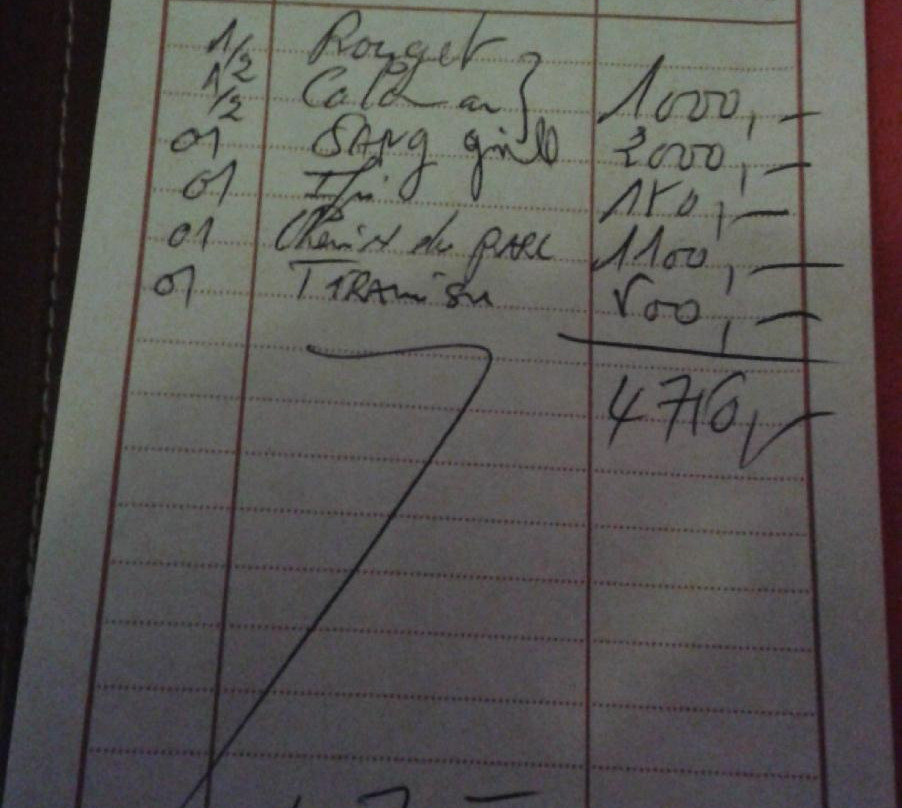 1/2 Rouget
1/2 Calamar } 1000,-
01 SANg grill 2000,-
01 Ifri 150,-
01 Chemin du PARC 1100,-
01 TIRAMiSu 500,-